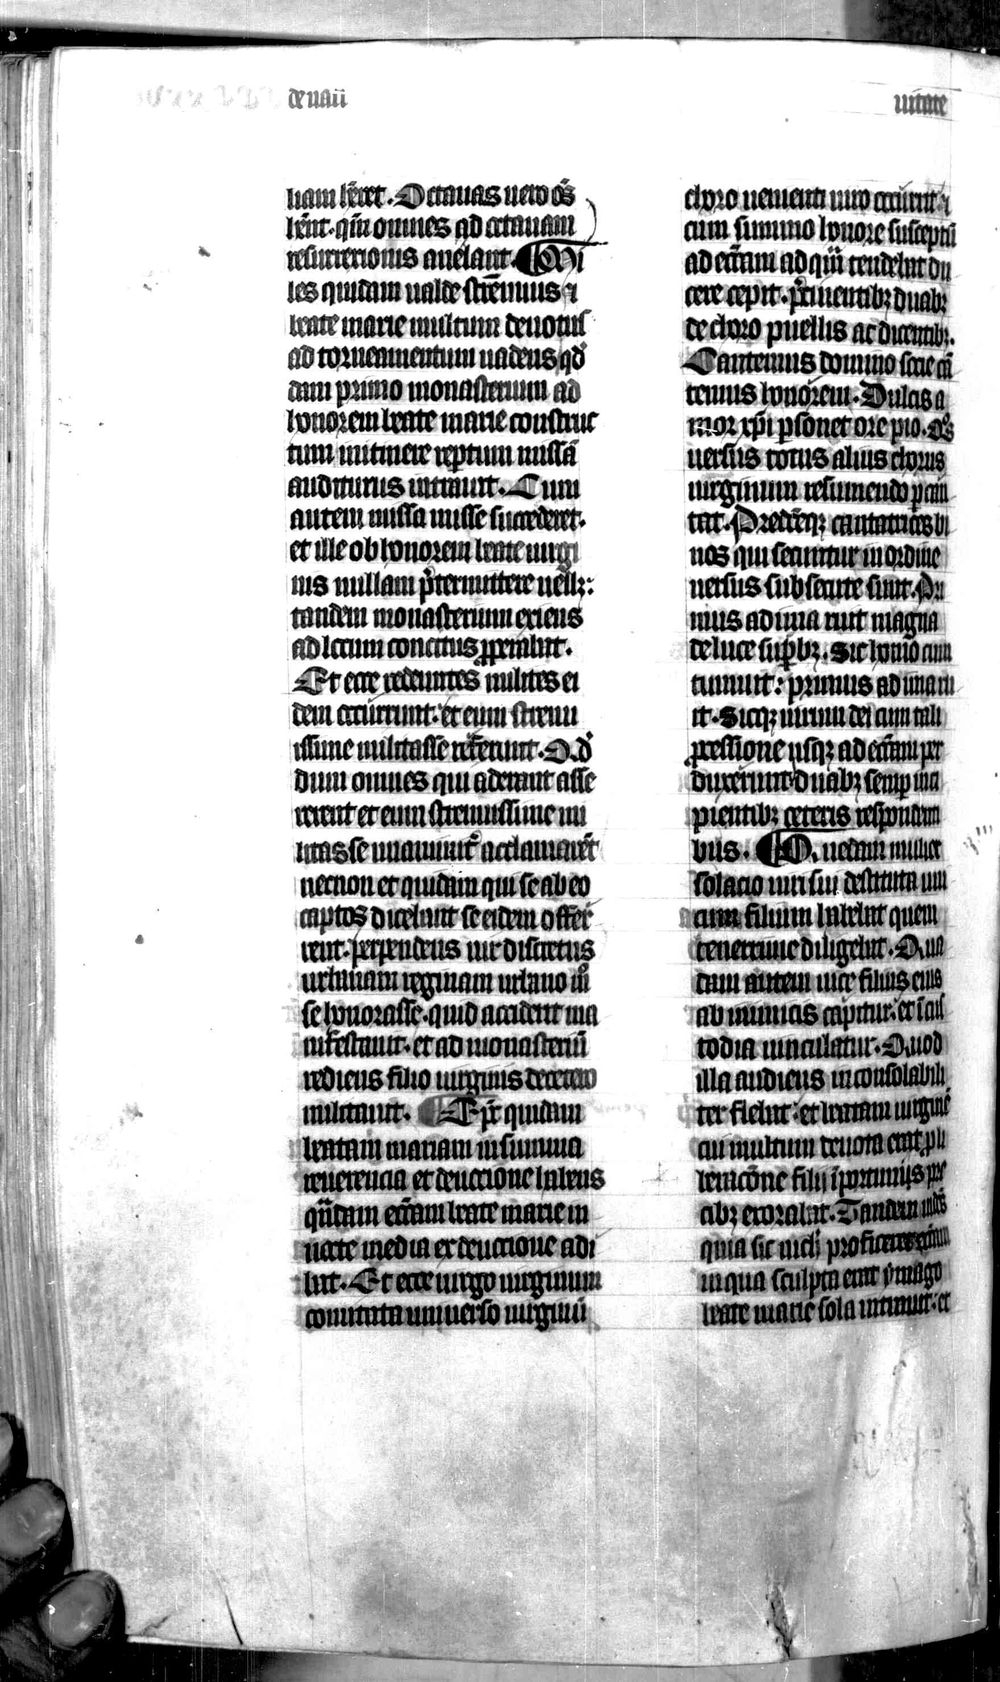 de nati
uitate
uam hēret. Octauas uero oēs
hēnt. qm̄ omnes ad octauam
resurrectionis anelant. Mi
les quidam ualde strēnuus ⁊
beate marie multum deuotus
ad torneamentum uadens qd̄
dam primo monasterium ad
honorem beate marie construc
tum in itinere repertum missā
auditurus intrauit. Cum
autem missa misse succederet.
et ille ob honorem beate uirgi
nis nullam p̄termittere uellꝫ:
tandem monasterium exiens
ad locum concitus ꝓperabat.
Et ecce redeuntes milites ei
dem occurrunt: et eum strenu
issime militasse referunt. Qd̄
dum omnes qui aderant asse
rerent et eum strenuissime mi
litasse unanimit̄ acclamarēt
necnon et quidam qui se ab eo
captos dicebant se eidem offer
rent. perpendens uir discretus
urbanam reginam urbano mº
se honorasse. quid acciderit ma
nifestauit. et ad monasteriū
rediens filio uirginis de cetero
militauit. Ep̄c quidam
beatam mariam in summa
reuerencia et deuocione habens
qm̄dam ecc̄am beate marie in
nocte media ex deuocione adi
bat. Et ecce uirgo uirginum
comitata uniuerso uirginū
choro uenienti uiro occurrit ⁊
cum summo honore susceptū
ad ecc̄am ad quā tendebat du
cere cepit. p̄cinentibꝫ duabꝫ
de choro puellis ac dicentibꝫ.
Cantemus domino socie cā
temus honorem. Dulcis a
mor xp̄i ꝑsonet ore pio. Qºs
uersus totus alius chorus
uirginum resumendo ꝑcan
tat. Predcēqꝫ cantatrices bi
nos qui secuntur in ordine
uersus subsecute sunt. Pri
mus ad ima ruit magna
de luce suꝑbꝫ. Sic homo cum
tumuit: primus ad ima ru
it. Sicqꝫ uirum dei cum tali
ꝓcessione usqꝫ ad ecc̄am per
duxerunt duabꝫ semꝑ inci
pientibꝫ ceteris responden
bus. Quedam mulier
solacio uiri sui destituta uni
cum filium habebat quem
tenerrime diligebat. Qua
dam autem uice filius eius
ab inimicis capitur: et ī cus
todia uinculatur. Quod
illa audiens inconsolabili
ter flebat: et beatam uirginē
cui multum deuota erat ꝓ li
beracōne filii īportunis pre
cibꝫ exorabat. Tandem uidēs
quia sic nichil proficeret ecc̄iam
in qua sculpta erat ymago
beate marie sola intrauit: et